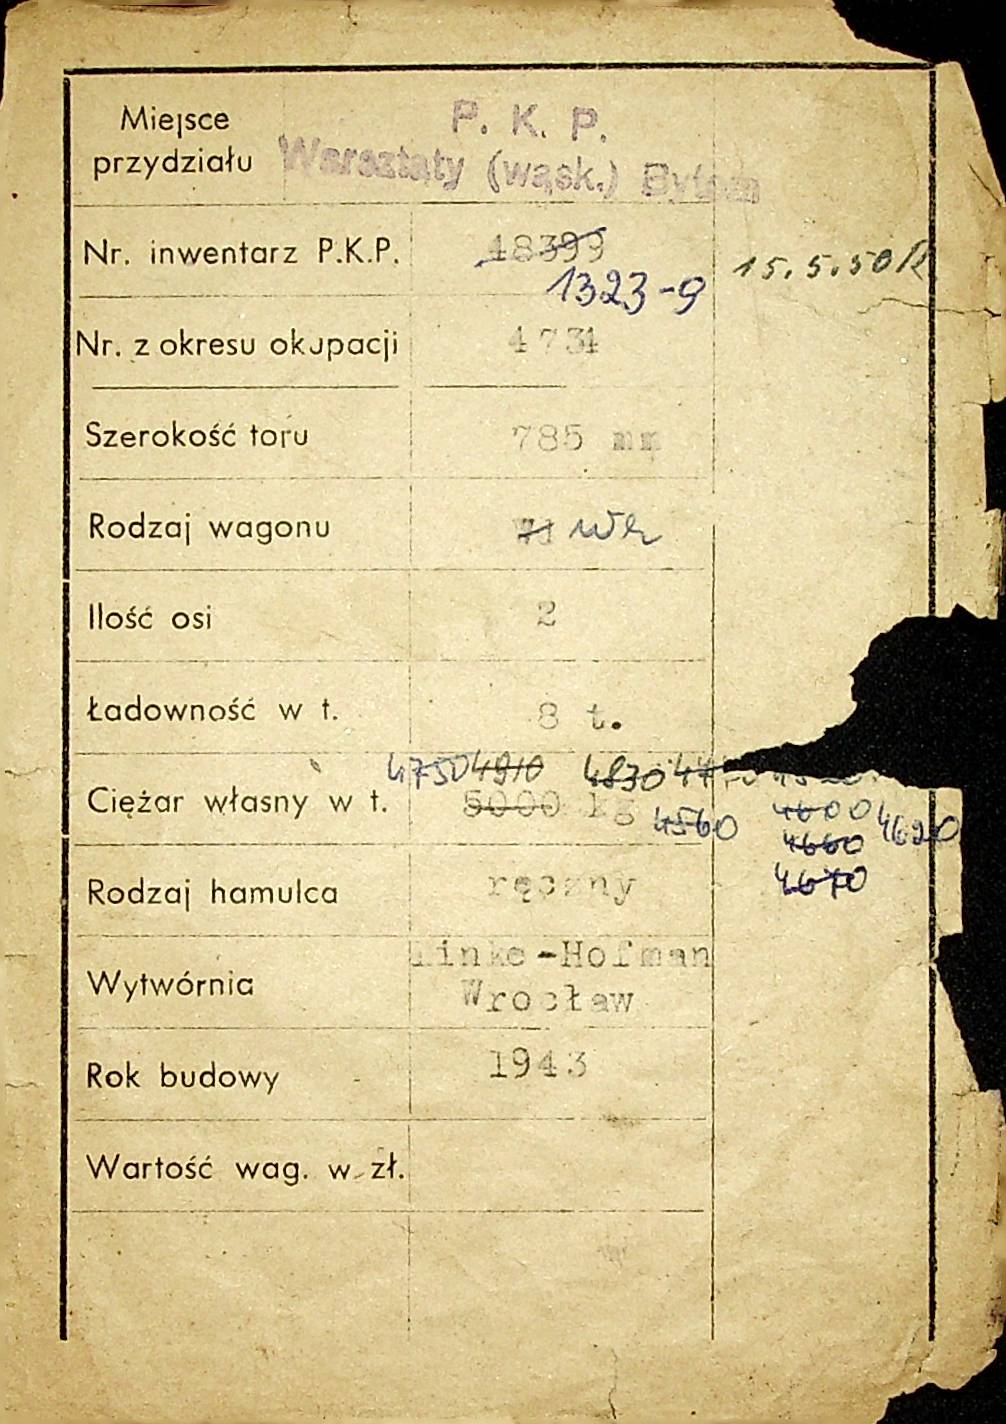 Miejsce
przydziału
P. K. P.
Warsztaty (wąsk.) Bytom
Nr. inwentarz P.K.P. 48399
1323-9 15.5.50
Nr. z okresu okupacji 4734
Szerokość toru 785 mm
Rodzaj wagonu
Ilość osi 2
Ładowność w t. 8 t.
4750 4910 4830
Ciężar własny w t. 5000 kg 4560 4600 4620
4660
4670
Rodzaj hamulca ręczny
Wytwórnia Linke-Hofman
Wrocław
Rok budowy 1943
Wartość wag. w zł.